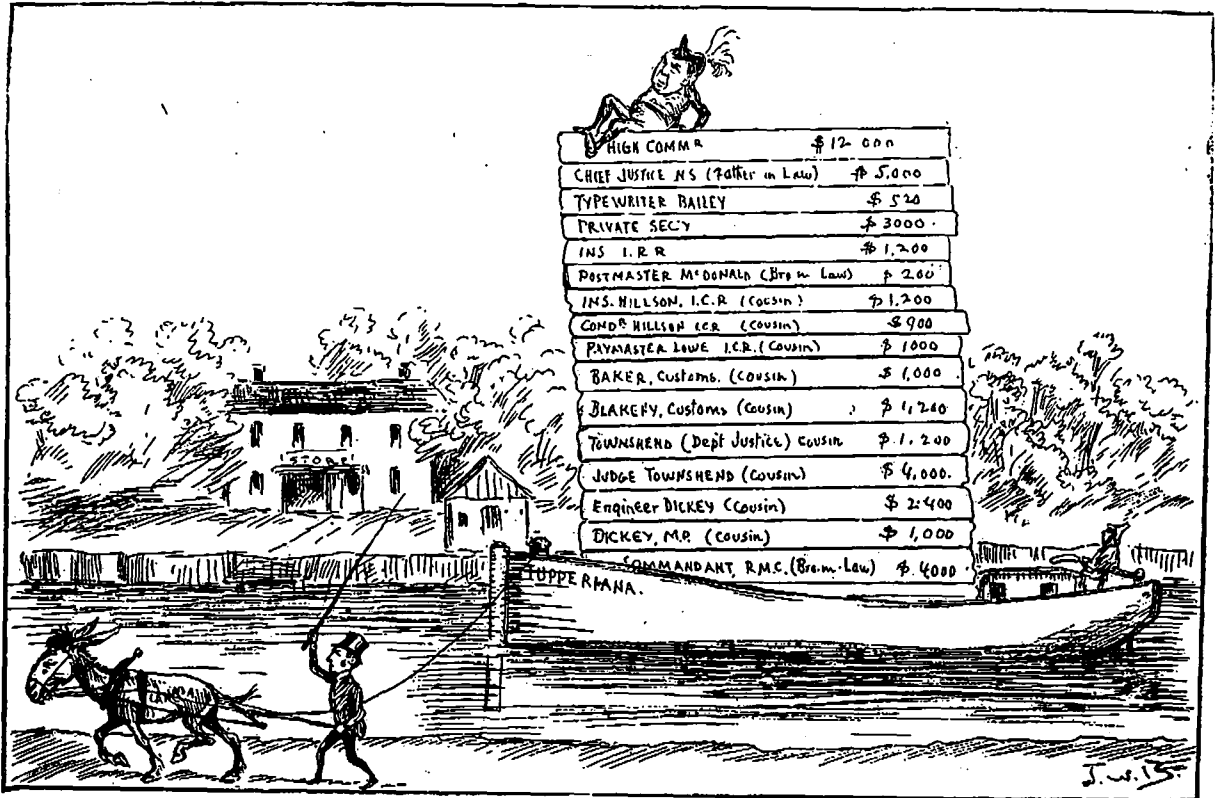 HIGH COMMR $12 000
CHIEF JUSTICE NS (Father in Law) $5,000
TYPEWRITER BAILEY $520
PRIVATE SECY $3000.
INS I.R R $1,200
POSTMASTER McDONALD (Bro in Law) $200
INS. HILLSON, I.C.R (Cousin) $1,200
CONDR HILLSON I.C.R (Cousin) $900
PAYMASTER LOWE I.C.R. (Cousin) $1000
BAKER, Customs. (Cousin) $1,000
BLAKENY, Customs (Cousin) $1,200
TOWNSHEND (Dept Justice) Cousin $1,200
JUDGE TOWNSHEND (Cousin) $4,000.
Engineer DICKEY (Cousin) $2.400
DICKEY, M.P. (Cousin) $1,000
COMMANDANT, R.M.C. (Bro.in.Law) $.4000
STORE
TUPPERIANA.
CANADA